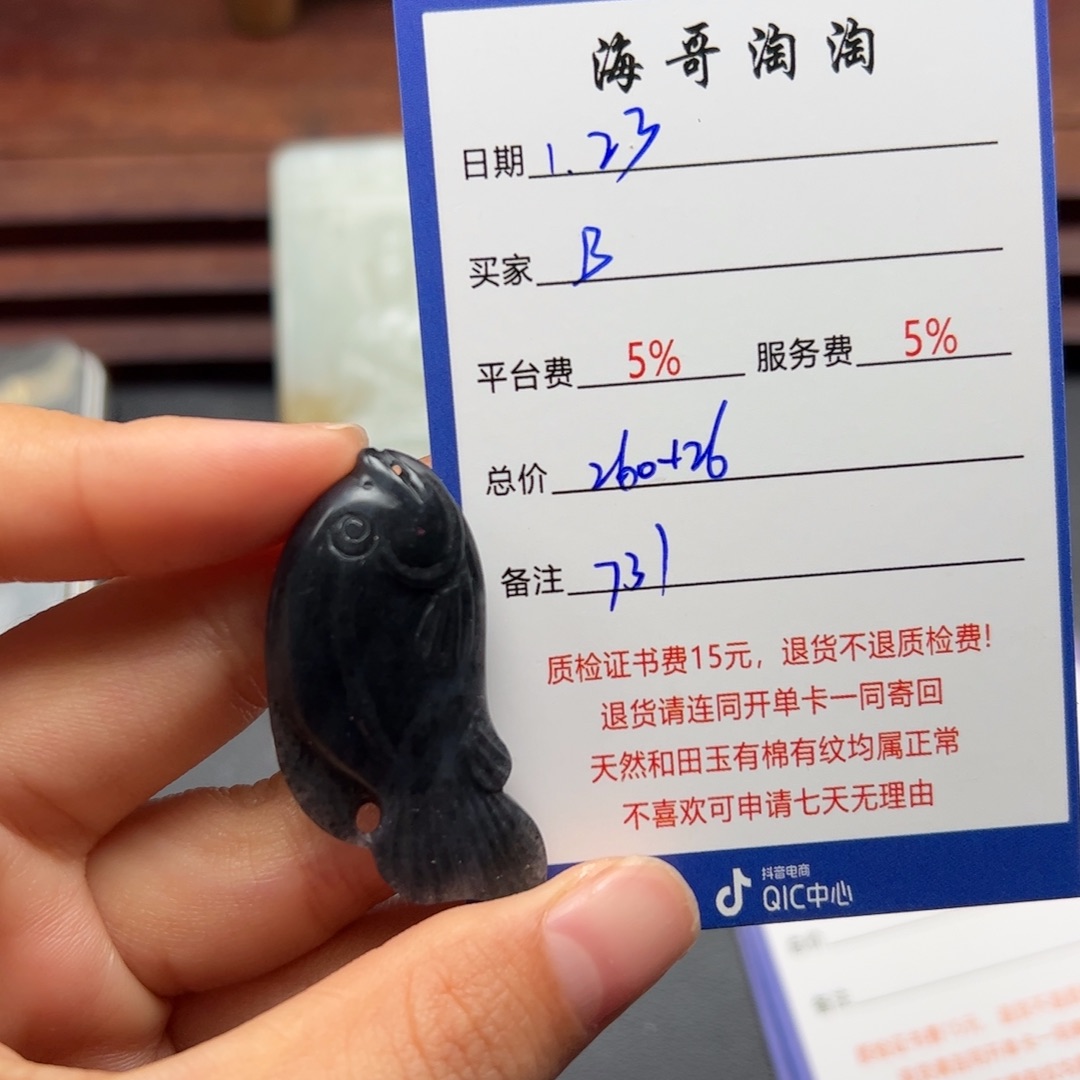 海哥淘淘
日期 1.23
买家 B
平台费 5% 服务费 5%
总价 260+26
备注 731
质检证书费15元，退货不退质检费!
退货请连同开单卡一同寄回
天然和田玉有棉有纹均属正常
不喜欢可申请七天无理由
抖音电商
QIC中心